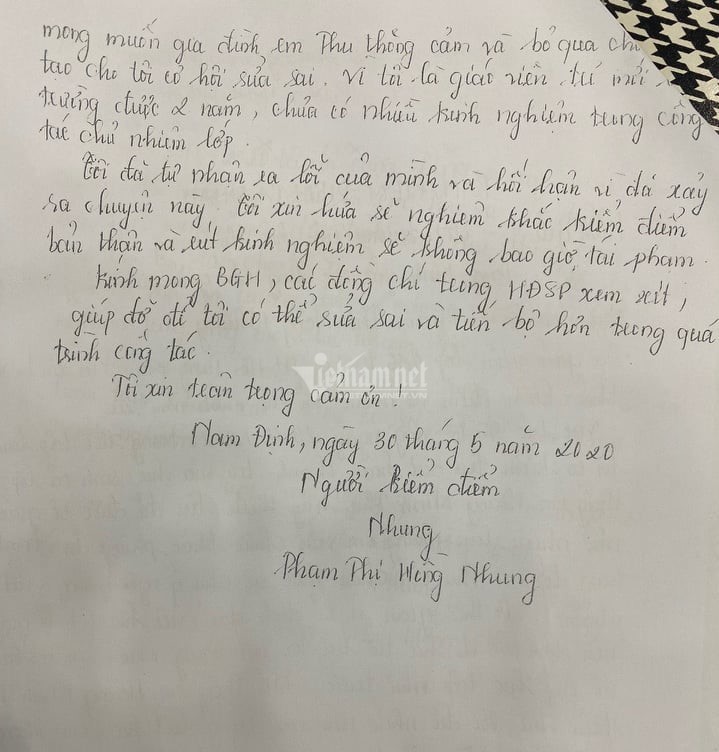 mong muốn gia đình em Thu thông cảm và bỏ qua
tạo cho tôi cơ hội sửa sai. Vì tôi là giáo viên từ mới
trường được 2 năm, chưa có nhiều kinh nghiệm trong công
tác chủ nhiệm lớp.
Tôi đã tự nhận ra lỗi của mình và hối hận vì đã xảy
ra chuyện này. Tôi xin hứa sẽ nghiêm khắc kiểm điểm
bản thân và rút kinh nghiệm sẽ không bao giờ tái phạm.
Kính mong BGH, các đồng chí trong HĐSP xem xét,
giúp đỡ để tôi có thể sửa sai và tiến bộ hơn trong quá
trình công tác.
Vietnamnet
VIETNAMNET.VN
Tôi xin trân trọng cảm ơn!
Nam Định, ngày 30 tháng 5 năm 2020
Người kiểm điểm
Nhung
Phạm Thị Hồng Nhung